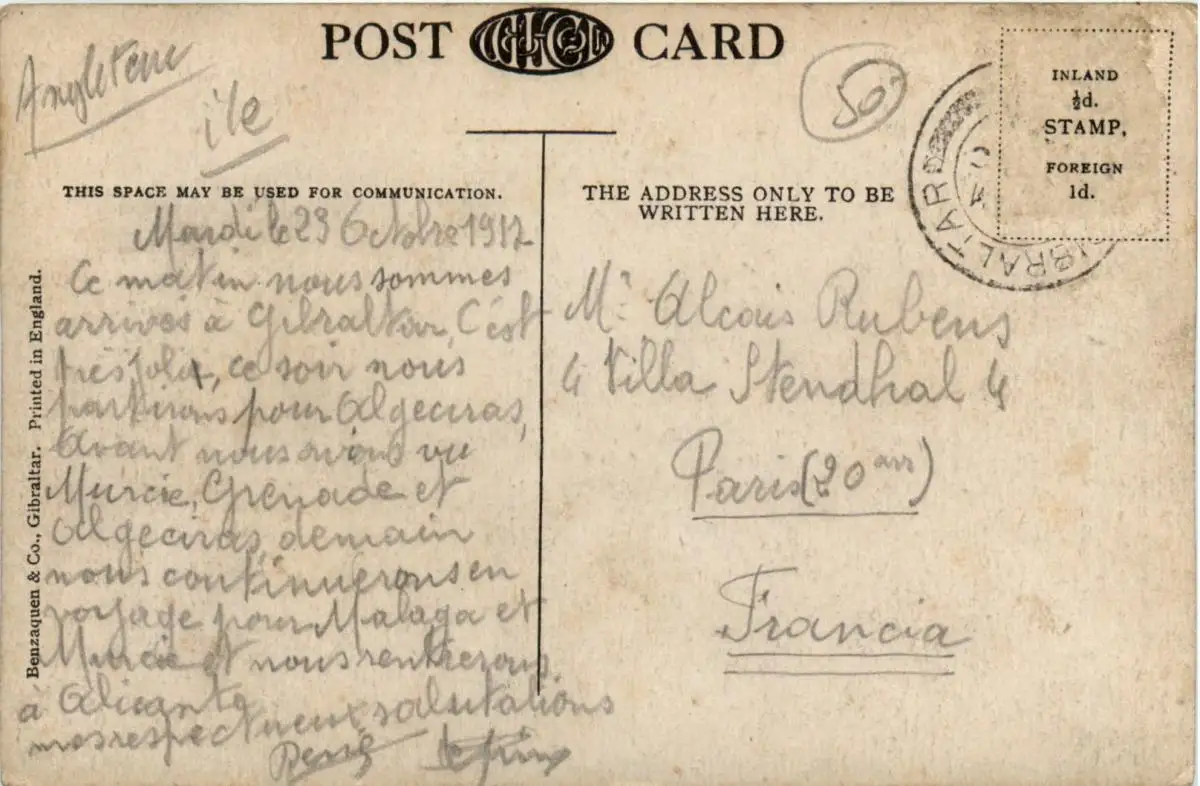 POST CARD
Angleterre
ile
50
INLAND
½d.
STAMP,
FOREIGN
1d.
GIBRALTAR
THIS SPACE MAY BE USED FOR COMMUNICATION.
Mardi le 23 Octobre 1917
Ce matin nous sommes
arrivés à Gibraltar, C'est
très joli, ce soir nous
partirons pour Algeciras,
Avant nous avions vu
Murcie, Grenade et
Algeciras, demain
nous continuerons en
voyage pour Malaga et
Murcie et nous rentrerons
à Alicante
mes respectueux salutations
THE ADDRESS ONLY TO BE
WRITTEN HERE.
Mr Alcais Rubens
4 Villa Stendhal 4
Paris (20 arr)
Francia
Benzaquen & Co., Gibraltar. Printed in England.